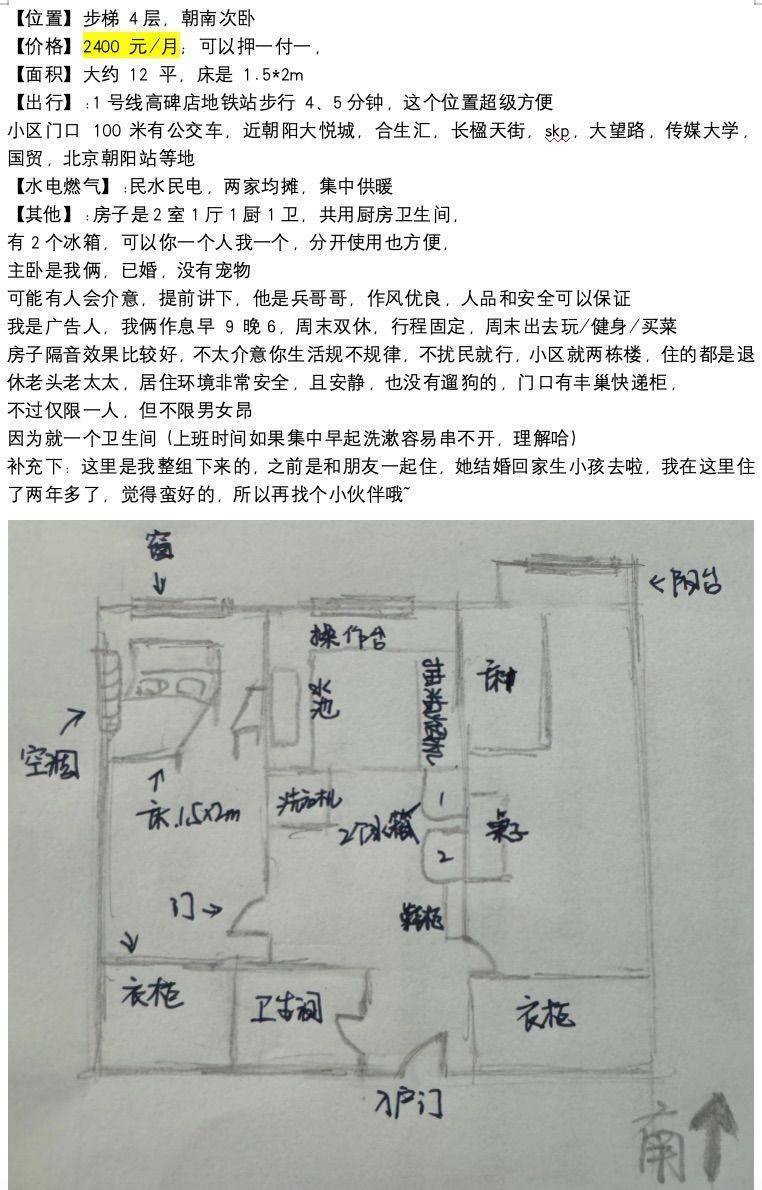 【位置】步梯 4 层，朝南次卧
【价格】2400 元/月；可以押一付一，
【面积】大约 12 平，床是 1.5*2m
【出行】:1 号线高碑店地铁站步行 4、5 分钟，这个位置超级方便
小区门口 100 米有公交车，近朝阳大悦城，合生汇，长楹天街，skp，大望路，传媒大学，
国贸，北京朝阳站等地
【水电燃气】:民水民电，两家均摊，集中供暖
【其他】:房子是 2 室 1 厅 1 厨 1 卫，共用厨房卫生间，
有 2 个冰箱，可以你一个人我一个，分开使用也方便，
主卧是我俩，已婚，没有宠物
可能有人会介意，提前讲下，他是兵哥哥，作风优良，人品和安全可以保证
我是广告人，我俩作息早 9 晚 6，周末双休，行程固定，周末出去玩/健身/买菜
房子隔音效果比较好，不太介意你生活规不规律，不扰民就行，小区就两栋楼，住的都是退
休老头老太太，居住环境非常安全，且安静，也没有遛狗的，门口有丰巢快递柜，
不过仅限一人，但不限男女昂
因为就一个卫生间（上班时间如果集中早起洗漱容易串不开，理解哈）
补充下：这里是我整组下来的，之前是和朋友一起住，她结婚回家生小孩去啦，我在这里住
了两年多了，觉得蛮好的，所以再找个小伙伴哦~
窗
阳台
操作台
水池
抽油烟机
床
空调
床.1.5×2m
洗衣机
2个冰箱
1
2
桌子
门
鞋柜
衣柜
卫生间
衣柜
入户门
南